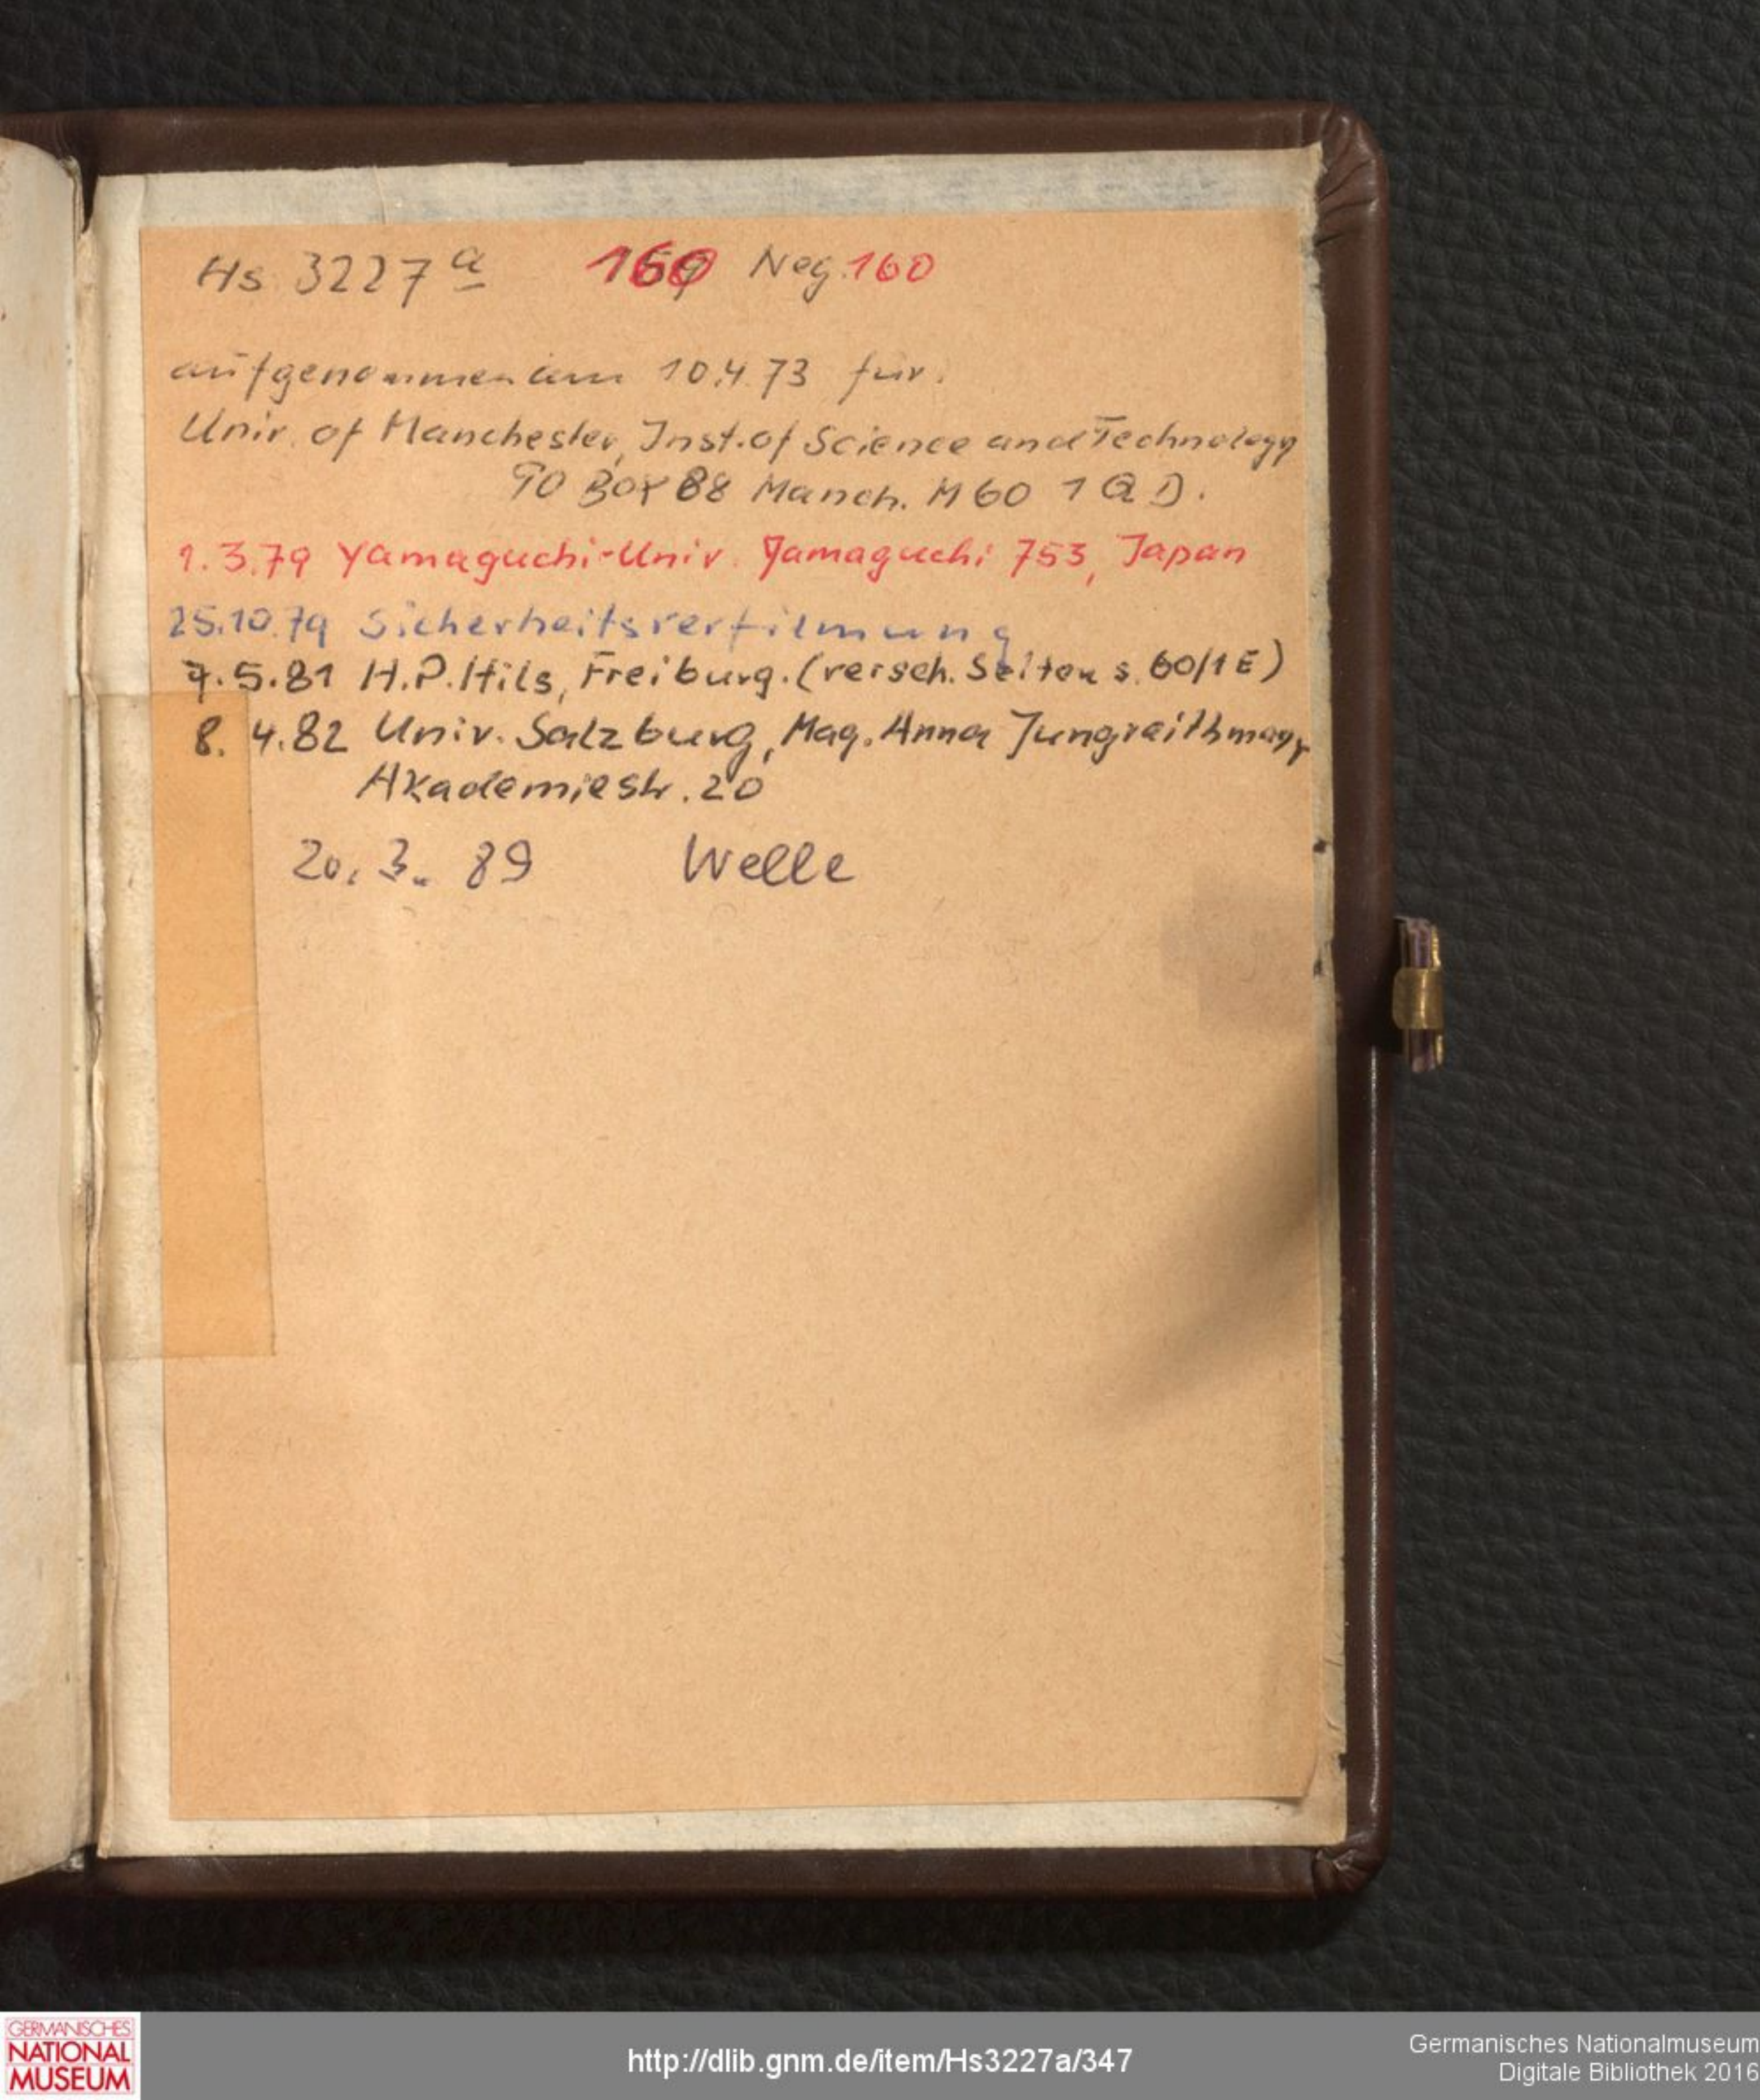 Hs 3227 a 160 Neg. 160
aufgenommen am 10.4.73 für.
Univ. of Manchester, Inst. of Science and Technology
PO Box 88 Manch. M60 1QD.
1.3.79 Yamaguchi-Univ. Yamaguchi 753, Japan
25.10.79 Sicherheitsverfilmung
7.5.81 H.P. Hils, Freiburg. (versch. Seiten s. 60/1E)
8. 4.82 Univ. Salzburg, Mag. Anna Jungreithmayr
Akademiestr. 20
20. 3. 89 Welle
GERMANISCHES
NATIONAL
MUSEUM
http://dlib.gnm.de/item/Hs3227a/347
Germanisches Nationalmuseum
Digitale Bibliothek 2016